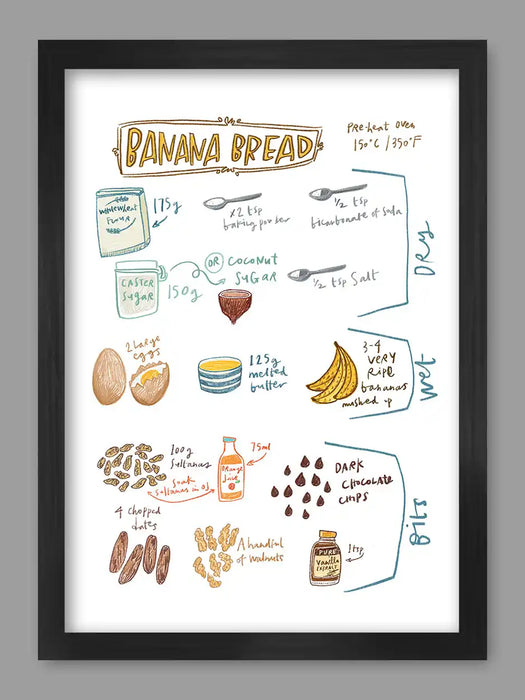 BANANA BREAD
Pre-heat oven
150°C / 350°F
Wholewheat
FLOUR
175g
x2 tsp
baking powder
1/2 tsp
bicarbonate of soda
CASTER
SUGAR
150g
OR COCONUT
SUGAR
1/2 tsp Salt
DRY
2 Large
eggs
125g
melted
butter
3-4
VERY
RIPE
bananas
mashed up
Wet
100g
Sultanas
Soak
Sultanas in OJ
Orange
Juice
75ml
DARK
CHOCOLATE
CHIPS
4 chopped
dates
A handful
of walnuts
PURE
Vanilla
EXTRACT
1 tsp
Bits